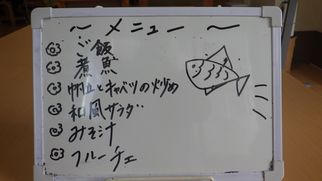 ～メニュー～
ご飯
煮魚
帆立とキャベツの炒め
和風サラダ
みそ汁
フルーチェ